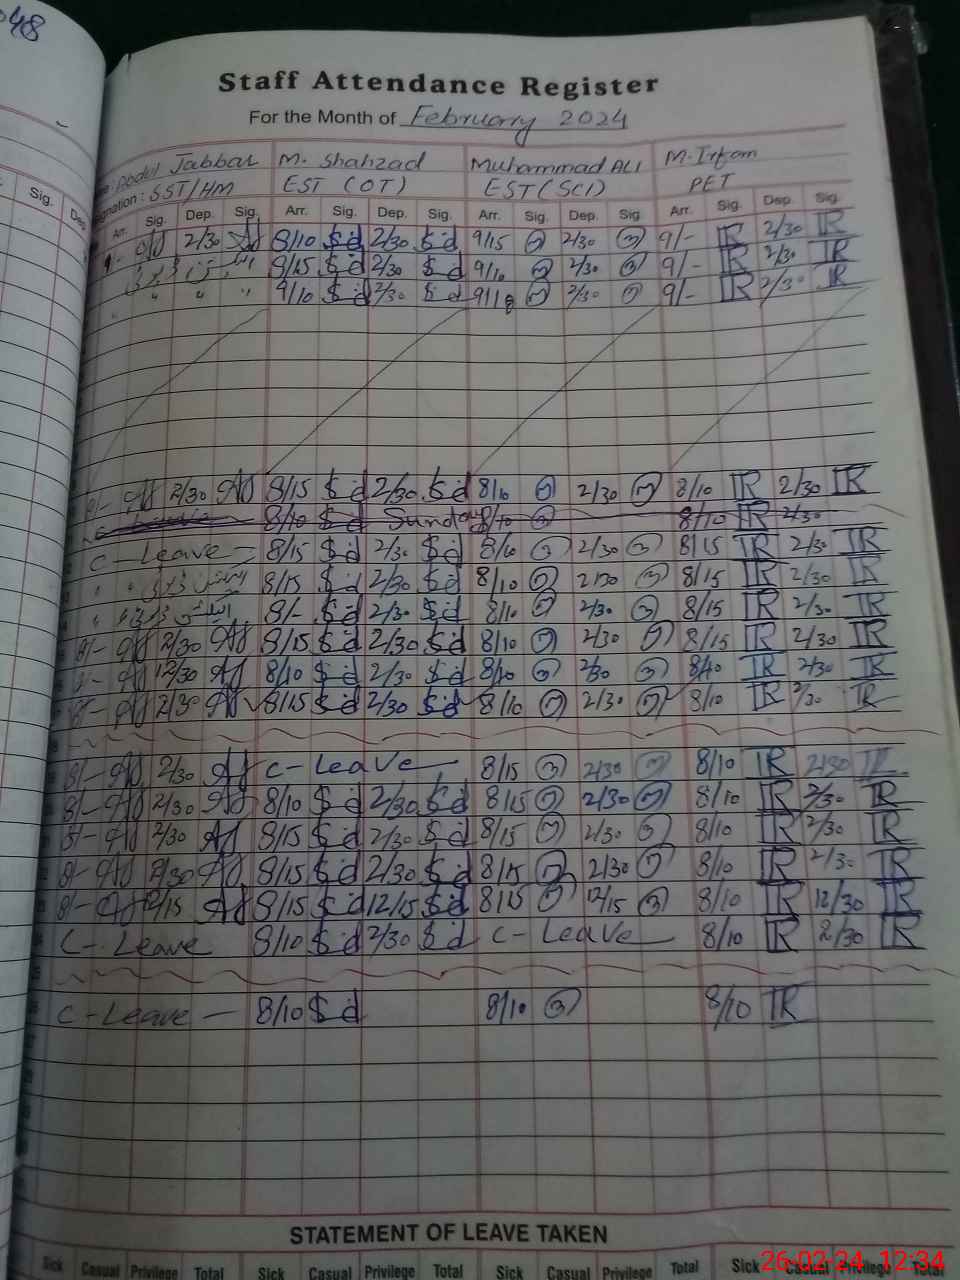 048
Staff Attendance Register
For the Month of February 2024
Abdul Jabbar M. Shahzad Muhammad ALI M. Irfan
Designation: SST/HM EST (OT) EST (SCI) PET
Sig. Dep. Arr. Sig. Dep. Sig. Arr. Sig. Dep. Sig. Arr. Sig. Dep. Sig. Arr. Sig. Dep. Sig.
9/- AJ 2/30 AJ 8/10 Sd 2/30 Sd 9/15 2/30 9/- IR 2/30 IR
8/15 Sd 2/30 Sd 9/10 2/30 9/- IR 2/30 IR
" " " 9/10 Sd 2/30 Sd 9/18 2/30 9/- IR 2/30 IR
8/- AJ 2/30 AJ 8/15 Sd 2/30 Sd 8/10 2/30 8/10 IR 2/30 IR
8/10 Sd Sunday 8/10 8/10 IR 2/30
C- Leave - 8/15 Sd 2/30 Sd 8/10 2/30 8/15 IR 2/30 IR
8/15 Sd 2/30 Sd 8/10 2/30 8/15 IR 2/30 IR
8/- Sd 2/30 Sd 8/10 2/30 8/15 IR 2/30 IR
8/- AJ 2/30 AJ 8/15 Sd 2/30 Sd 8/10 2/30 8/15 IR 2/30 IR
8/- AJ 12/30 AJ 8/10 Sd 2/30 Sd 8/10 2/30 8/10 IR 2/30 IR
8/- AJ 2/30 AJ 8/15 Sd 2/30 Sd 8/10 2/30 8/10 IR 2/30 IR
8/- AJ 2/30 AJ C- Leave - 8/15 2/30 8/10 IR 2/30 IR
8/- AJ 2/30 AJ 8/10 Sd 2/30 Sd 8/15 2/30 8/10 IR 2/30 IR
8/- AJ 2/30 AJ 8/15 Sd 2/30 Sd 8/15 2/30 8/10 IR 2/30 IR
8/- AJ 2/30 AJ 8/15 Sd 2/30 Sd 8/15 2/30 8/10 IR 2/30 IR
8/- AJ 12/15 AJ 8/15 Sd 12/15 Sd 8/15 12/15 8/10 IR 12/30 IR
C- Leave 8/10 Sd 2/30 Sd C- Leave - 8/10 IR 2/30 IR
C- Leave - 8/10 Sd 8/10 8/10 IR
STATEMENT OF LEAVE TAKEN
Sick Casual Privilege Total Sick Casual Privilege Total Sick Casual Privilege Total Sick Casual Privilege Total
26-02-24 12:34